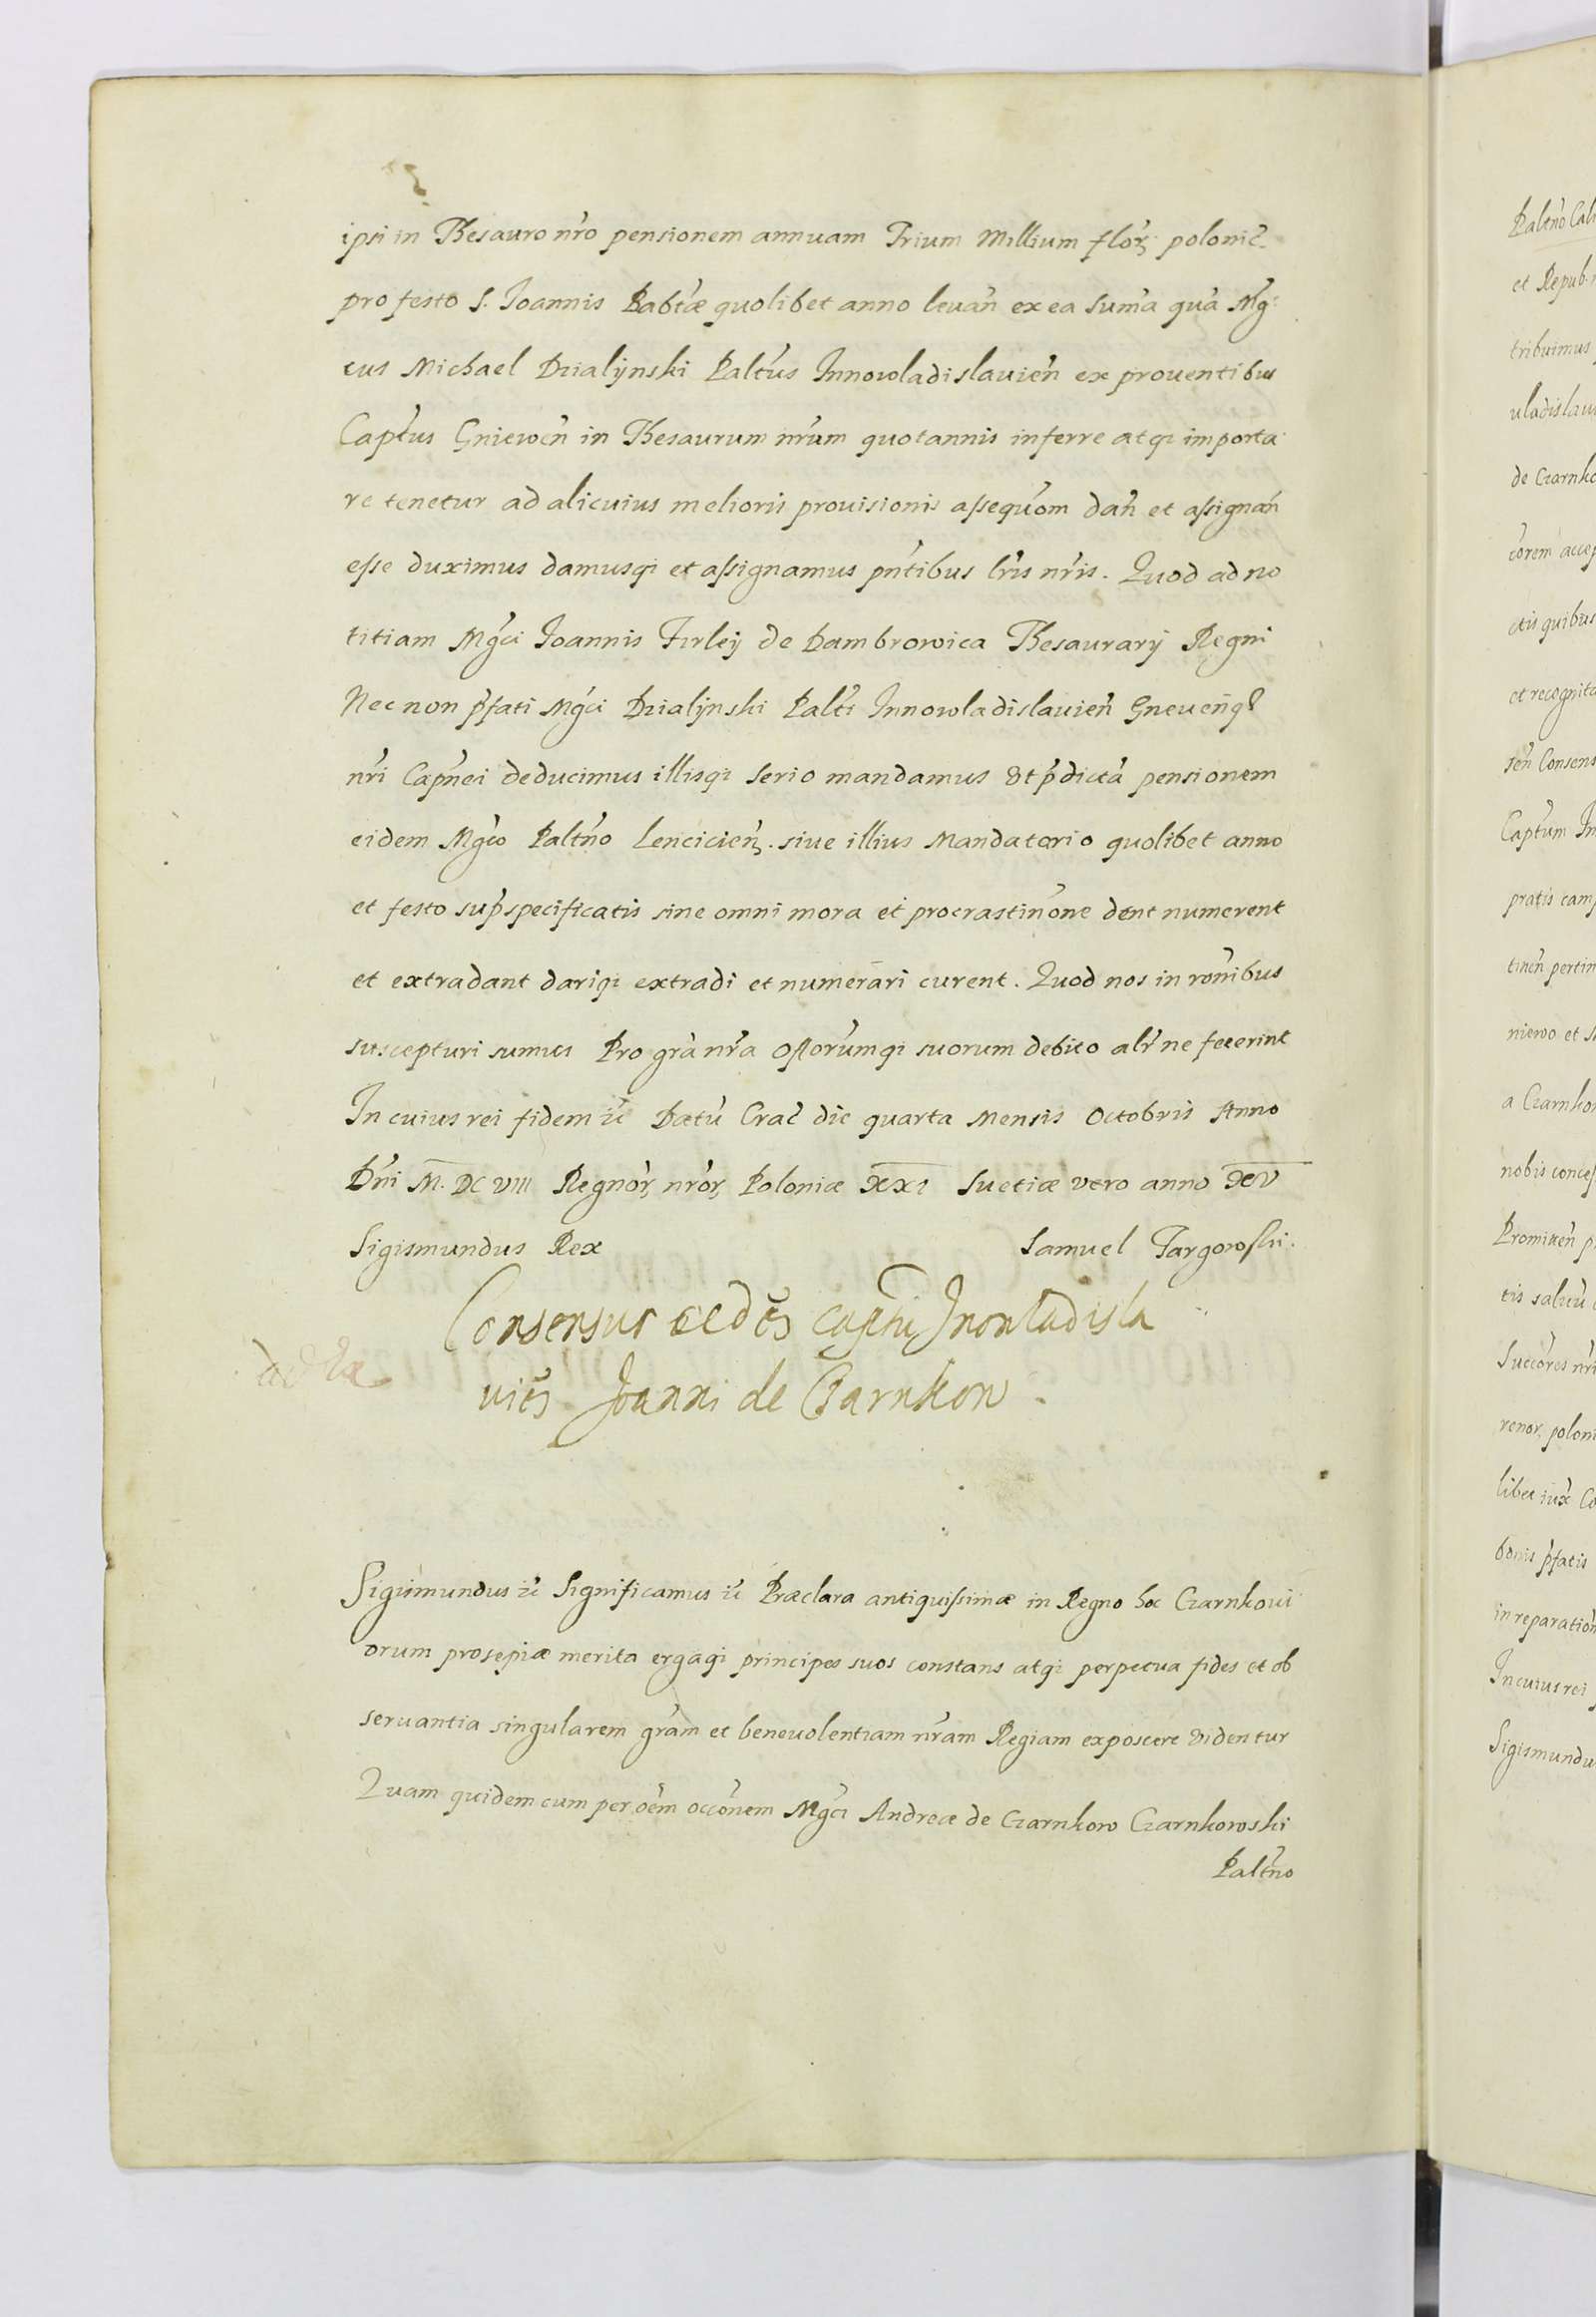 ipsi in Thesauro nr̃o pensionem annuam Trium Millium flor̃ polonic̃
pro festo S. Joannis Babtæ quolibet anno leuan̄ ex ea Sum̃a quã Mg̃
cus Michael Dzialÿnski Palt̃us Innowladislauien̄ ex prouentibus
Capt̃us Gniewen̄ in Thesaurum nr̃um quotannis inferre atq; importa
re tenetur ad alicuius melioris prouisionis assequõm dañ et assignañ
esse duximus damusq; et assignamus pñtibus lr̃is nr̃is. Quod ad no
titiam Mg̃ci Joannis Firleÿ de Dambrowica Thesaurarÿ Regni
Nec non p̃fati Mg̃ci Dzialÿnski Palt̃i Innowladislauien̄ Gneuen̄q;
nr̃i Capñei deducimus illisq; serio mandamus vt p̃dictã pensionem
eidem Mg̃co Paltño Lencicien̄. siue illius Mandatario quolibet anno
et festo sup̃specificatis sine omni mora et procrastinõne dent numerent
et extradant dariq; extradi et numerari curent. Quod nos in roñibus
suscepturi sumus Pro grã nr̃a offor̃umq; suorum debito alr̃ ne fecerint
In cuius rei fidem &c̃ Datũ Crac̃ die quarta Mensis Octobris Anno
Dñi M. DC VIII Regnor̃ nr̃or̃ Poloniæ XXI Suetiæ vero anno XV
Sigismundus Rex Samuel Targowski.
Consensus ced̃ Capt̃u Jnowladisla
uien̄ Joanni de Czarnkow.
Sigismundus &c̃ Significamus &c̃ Præclara antiquissimæ in Regno hoc Czarnkoui
orum prosepiæ merita ergaq; principes suos constans atq; perpetua fides et ob
seruantia singularem gr̃am et beneuolentiam nr̃am Regiam exposcere videntur
Quam quidem cum per oẽm occõnem Mg̃ci Andreæ de Czarnkow Czarnkowski
Paltño
Paltño Cal
et Repub.
tribuimus
uladislau
de Czarnko
et recognita
Capt̃um In
pratis camp
niewo et
a Czarnko
nobis conces
Promitten̄
renor. poloni
bonis p̃fatis
in reparatioñ
In cuius rei
Sigismundu